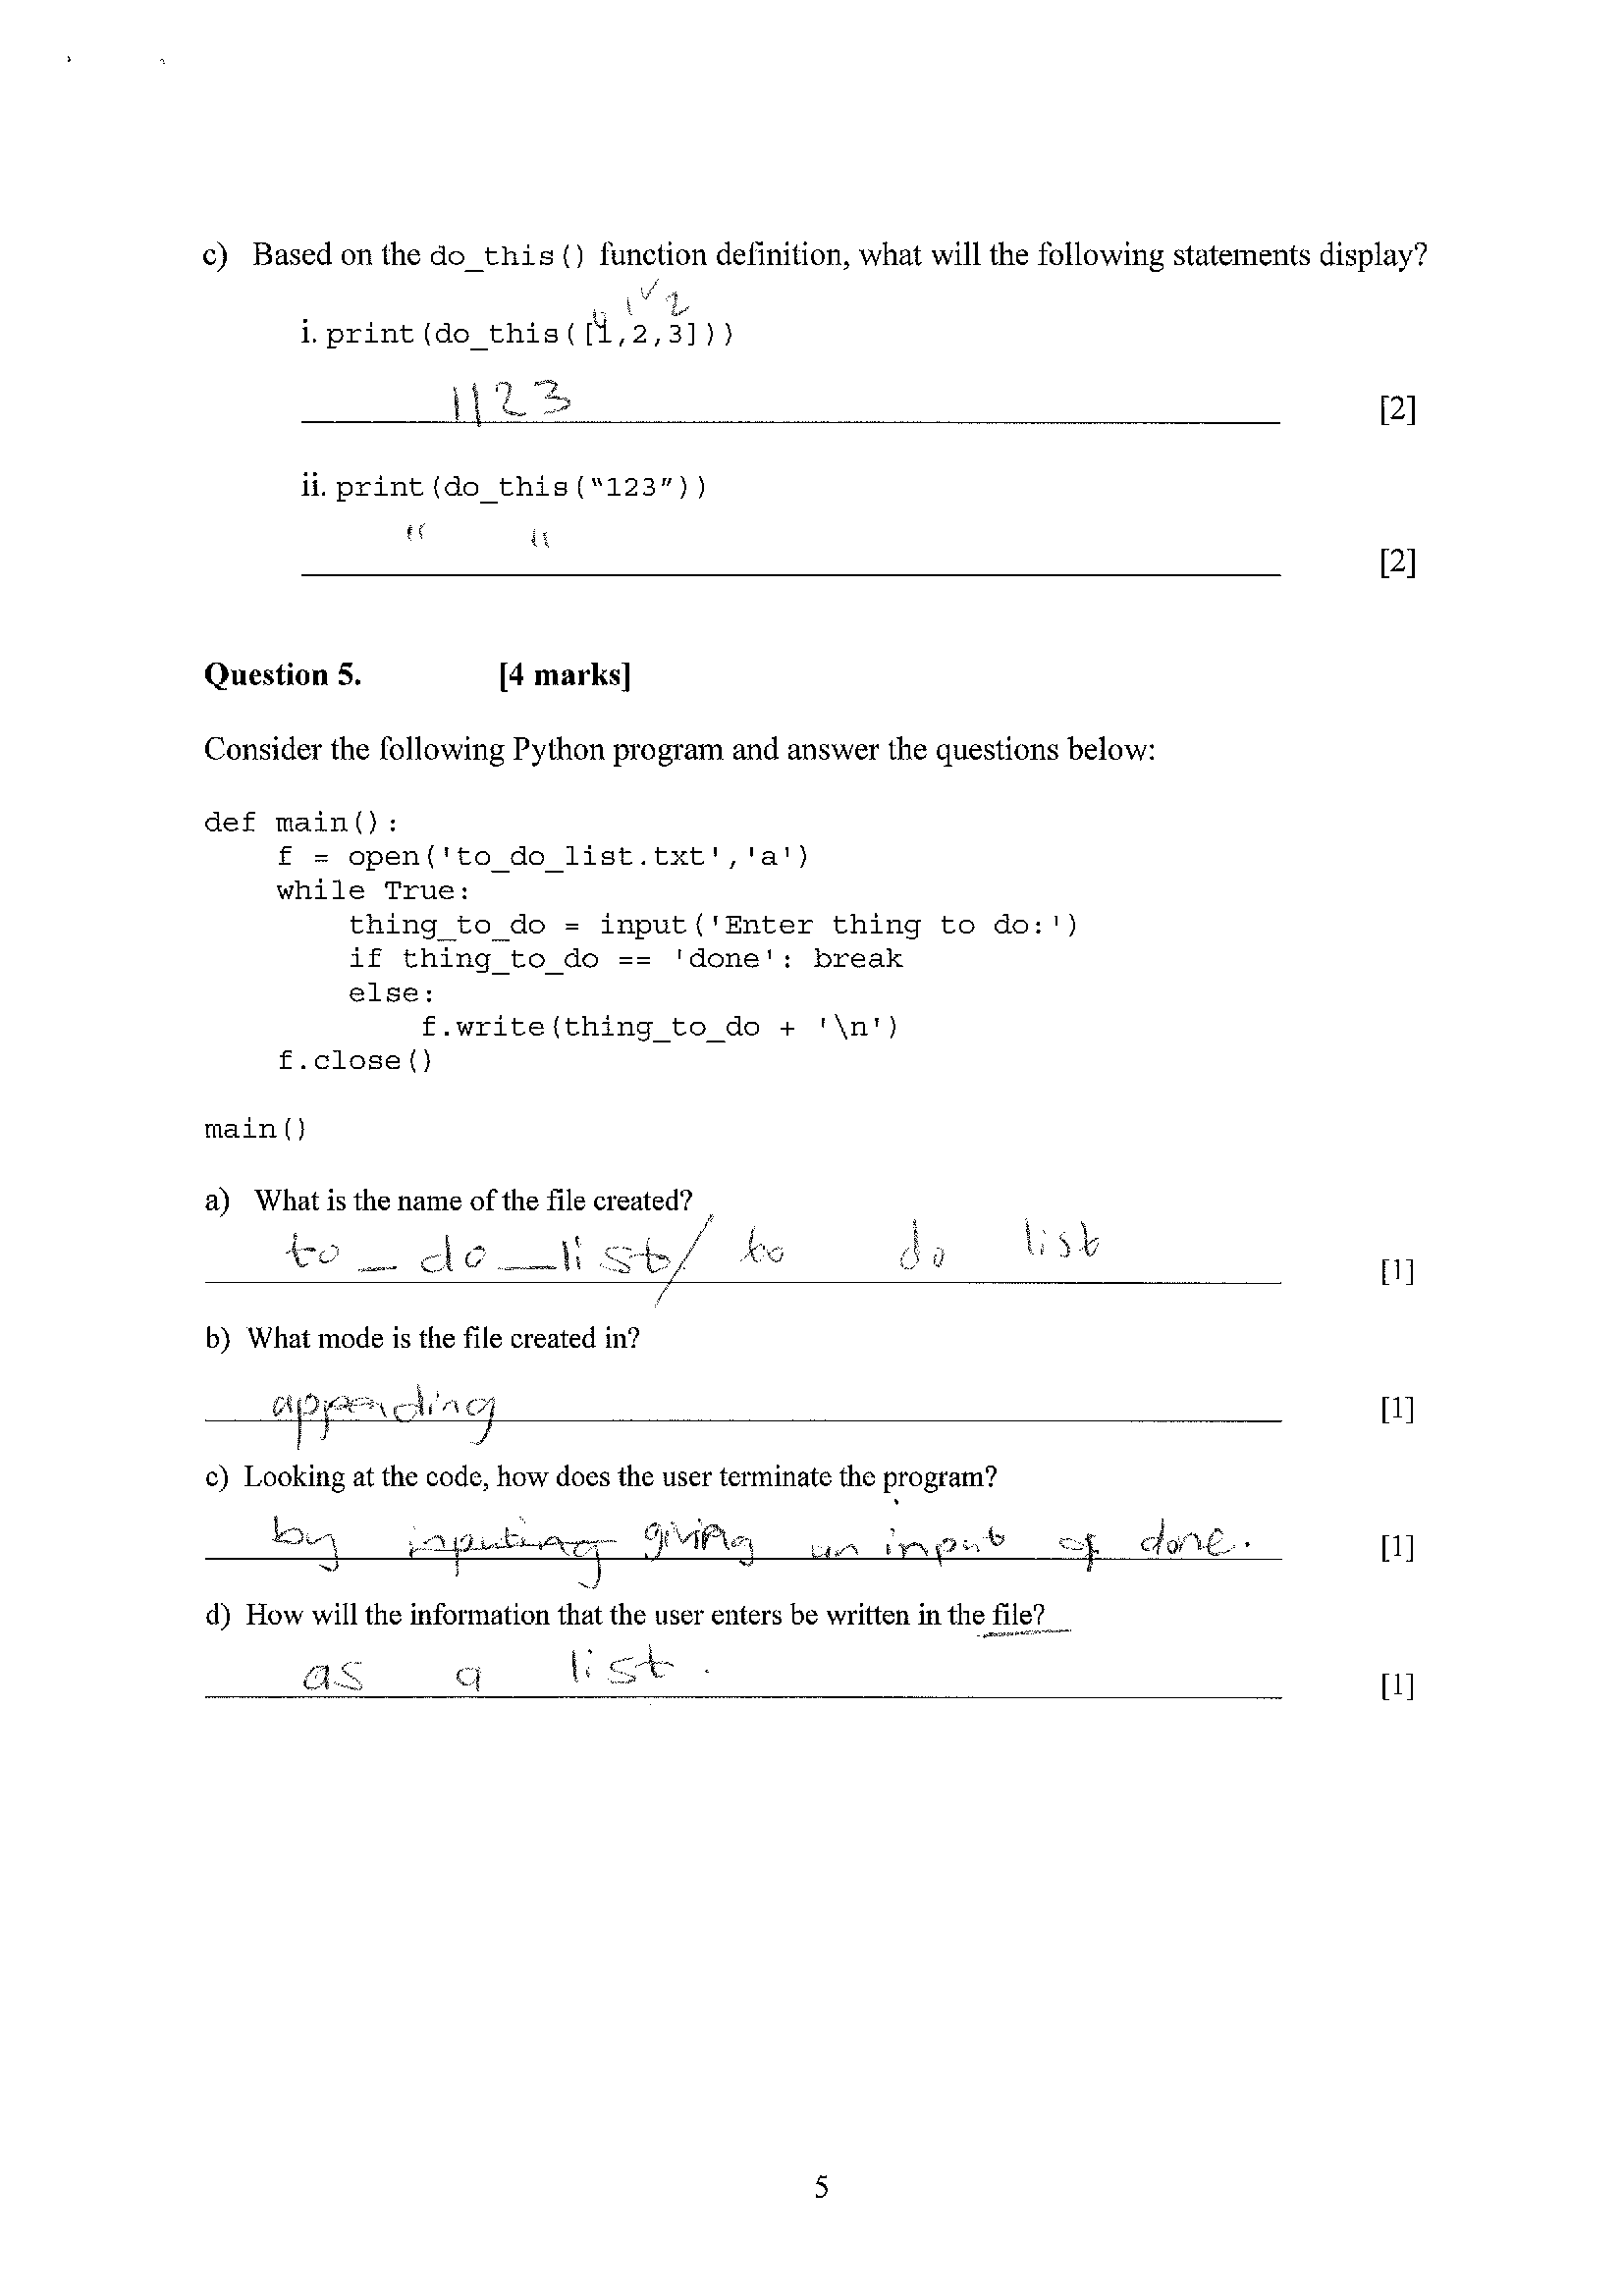 c) Based on the do_this() function definition, what will the following statements display?
1 2
i. print(do_this([1,2,3]))
1123 [2]
ii. print(do_this(“123”))
" " [2]
Question 5. [4 marks]
Consider the following Python program and answer the questions below:
def main():
    f = open('to_do_list.txt','a')
    while True:
        thing_to_do = input('Enter thing to do:')
        if thing_to_do == 'done': break
        else:
            f.write(thing_to_do + '\n')
    f.close()
main()
a) What is the name of the file created?
to_do_list/ to do list [1]
b) What mode is the file created in?
appending [1]
c) Looking at the code, how does the user terminate the program?
by inputing giving an input of done. [1]
d) How will the information that the user enters be written in the file?
as a list. [1]
5